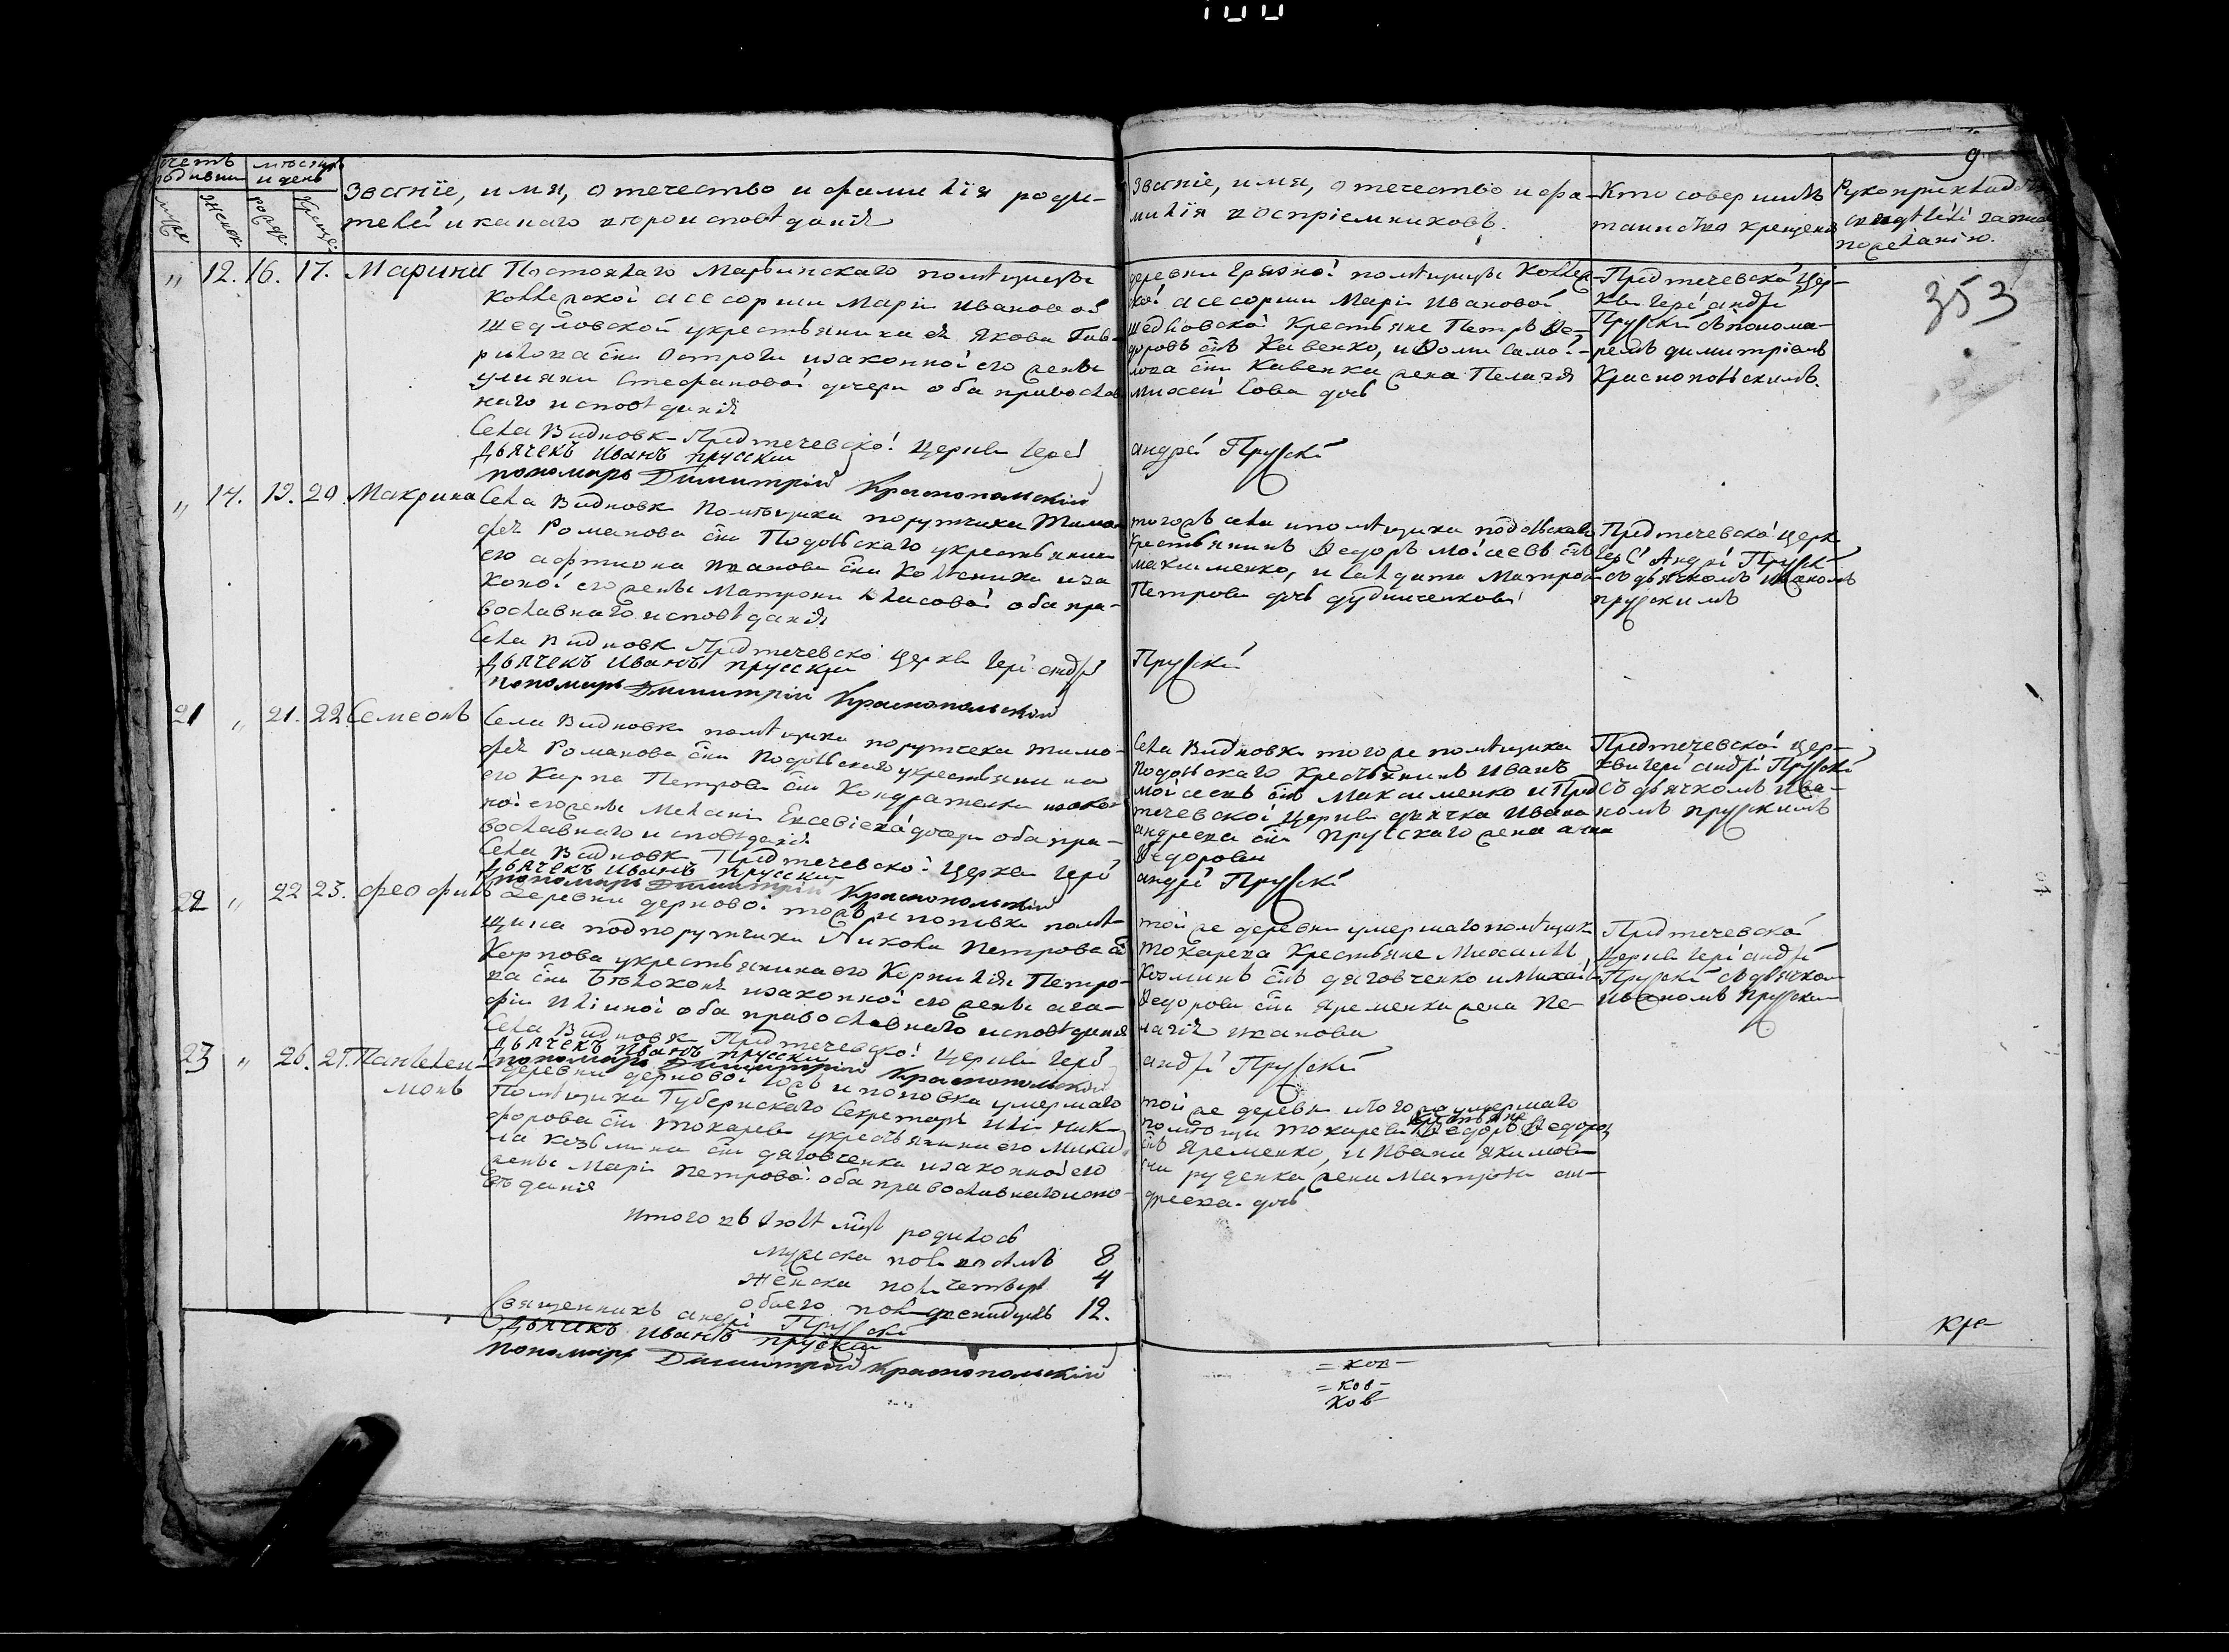 100
9
счетъ родивши
мѣсяцъ и день
муже
женск
рожде
креще
Званїе, имя, отечество и фамилїя роди-
телей и какаго вѣроисповѣданїя
Званїе, имя, отечество и фа-
милїя воспрїемниковъ.
Кто совершилъ
таинство крещенїя
Рукоприкладст
свидѣтелей
по желанїю.
353
" 12. 16. 17. Марина
помѣщицы
асесорши Марїи Ивановой
Шедловской крестьянина ея Якова Гав-
рилова сна Остроги и законной его жены
Улияни Стефановой дочери оба православ
наго исповѣданїя
Села Видновк Предтечевской Церкви Іерей
Дьячекъ Иванъ Прусскїй
пономарь Димитрїй Краснопольскїй
деревни Грязной помѣщицы Коллеж
ской асесорши Марїи Ивановой
Шедловской Крестьяне Петръ Ѳе-
доровъ снъ Кавенко, и
сна Кавенка жена Пелагїя
дочь
Андрей Прусскїй
Предтечевской Цер-
кви Іерей Андрей
Прусскїй съ понома-
ремъ Димитрїемъ
Краснопольскимъ.
" 14. 19. 20. Макрина
Села Видновк Помѣщика поручика Тимо
фея Романова сна Подольскаго крестьянина
его
ной его жены Матрони Власовой оба пра-
вославнаго исповѣданїя
Села Видновк Предтечевской Церкви Іерей Андрей
Дьячекъ Иванъ Прусскїй
пономарь Димитрїй Краснопольскїй
тогожъ села и помѣщика Подольскаго
Крестьянинъ Ѳедоръ Моісеевъ снъ
Максименко, и Салдата Матрона
Петрова дочь
Прусскїй
Предтечевской церк
Іерей Андрей Прусскїй
съ дьячкомъ Иваномъ
Прусскимъ
21 " 21. 22. Семеонъ
Села Видновк помѣщика поручика Тимо-
фея Романова сна Подольскаго крестьянина
его Карпа Петрова сна Кондратенка и зако-
ной его жены Меланїи Евсевїевой дочери оба пра-
вославнаго исповѣданїя
Села Видновк Предтечевской Церкви Іерей
Дьячекъ Иванъ Прусскїй
пономарь Димитрїй Краснопольскїй
Села Видновк тогоже помѣщика
Подольскаго Крестьянинъ Иванъ
Моісеевъ снъ Максименко и Пред
течевской Церкви дьячка Ивана
Андреева сна Прусскаго жена Анна
Ѳедорова
Андрей Прусскїй
Предтечевской Цер-
кви Іерей Андрей Прусскїй
съ дьячкомъ Ива-
номъ Прусскимъ
22 " 22 23. Феофилъ
Деревни Дерновой тожъ и Поповка помѣ-
щика подпоручика Якова Петрова сна
Карпова крестьянина его Корнилїя Петро-
ва сна Бѣлоконя и законной его жены Ага-
фїи Илїиной оба православнаго исповѣданїя
Села Видновк Предтечевской Церкви Іерей
Дьячекъ Иванъ Прусскїй
пономарь Димитрїй Краснопольскїй
той же деревни умершаго помѣщика
Токарева Крестьяне Михаилъ
Козминъ снъ Дяговченко и Михаила
Ѳедорова сна Яременка жена Пе-
лагїя Иванова
Андрей Прусскїй
Предтечевской
Церкви Іерей Андрей
Прусскїй съ дьячком
Иваномъ Прусским
23 " 26. 27. Пантелеи-
монъ
Деревни Дерновой тожъ и Поповка умершаго
Помѣщика Губернскаго Секретаря Илїи Ники
форова сна Токарева крестьянина его Михаи
ла Козьмина сна Дяговченка и законной его
жены Марїи Петровой оба православнаго испо-
вѣданїя
той же деревни и тогоже умершаго
помѣщи Токарева крестьяне Ѳедоръ Ѳедоров
снъ Яременко, и Ивана Якимова
сна Руденка жена Матрона Ан-
дреева дочь
Итого въ Іюлѣ мцѣ родилось
мужеска пола восемъ 8
женска пола четыри 4
обоего пола дванадцать 12.
Священникъ Андрей Прусскїй
Дьячекъ Иванъ Прускїй
Пономарь Димитрїй Краснопольскїй
кре
= ков-
= ков-
ков-